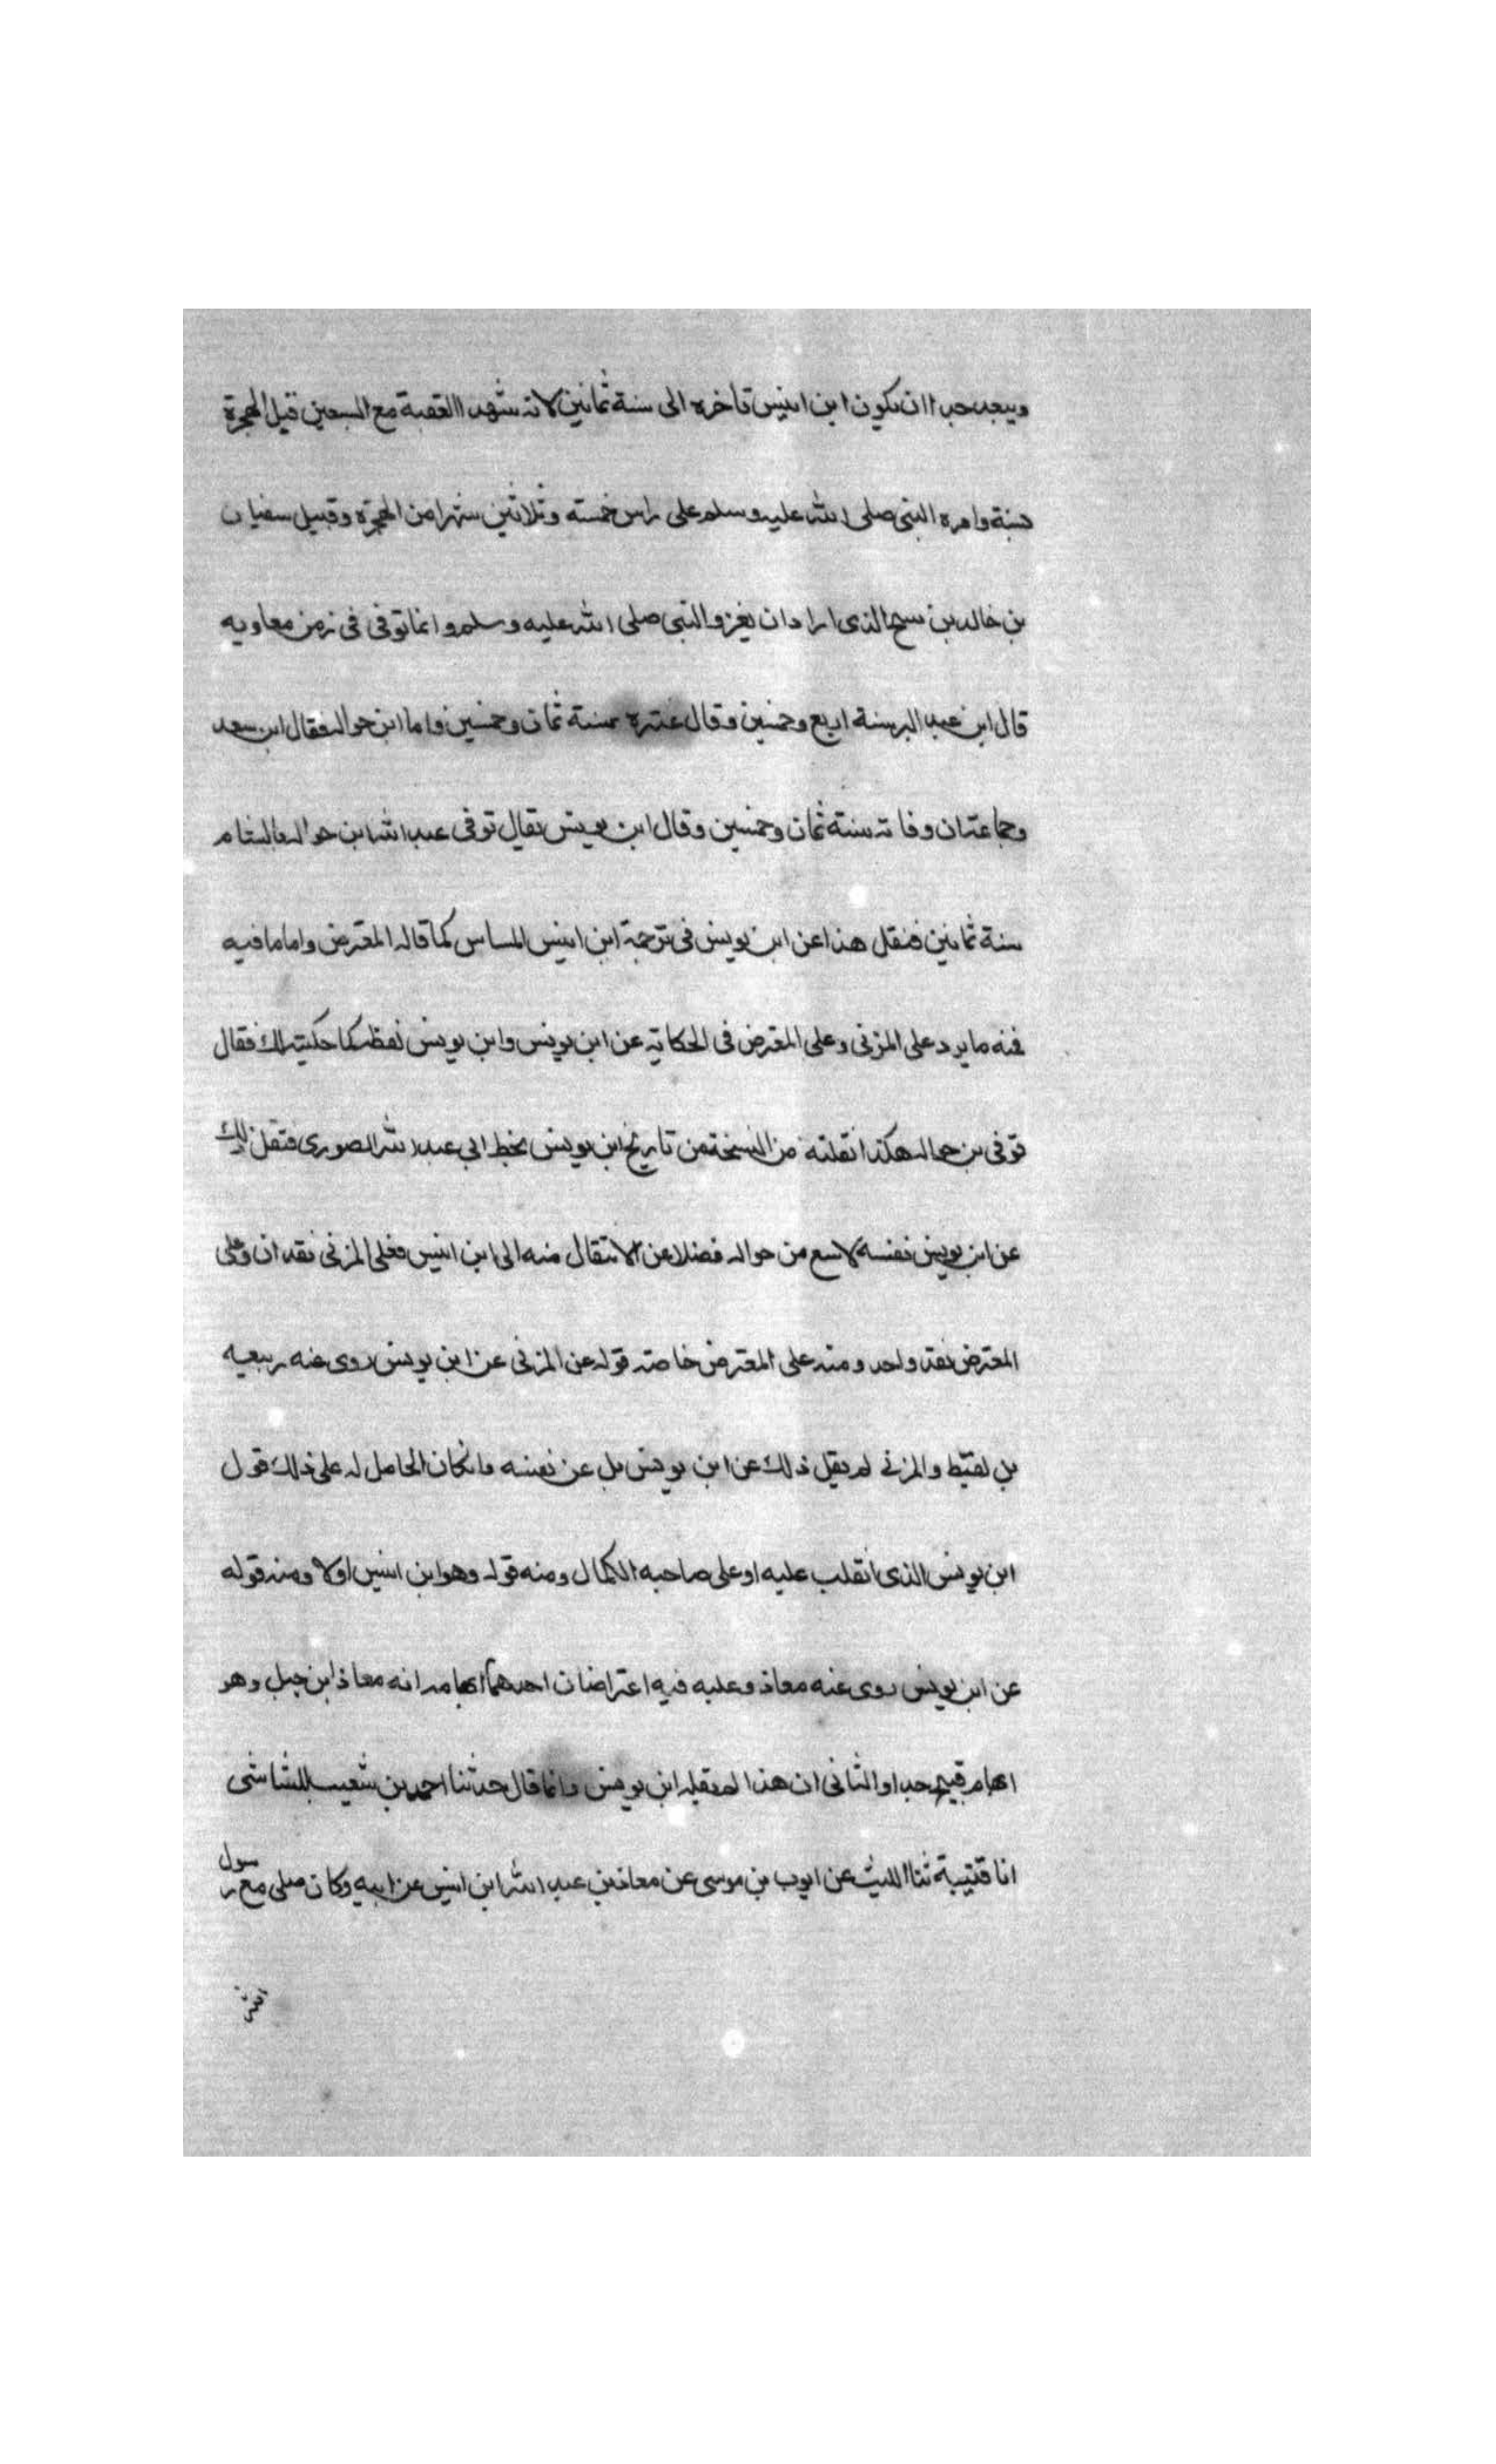 ويبعد جدا ان يكون ابن انيس تاخره الى سنة ثمانين لانه شهد العقبة مع السبعين قبل الهجرة
سنة وامره النبى صلى الله عليه وسلم على راس خمسه وثلاثين شهرا من الهجرة وقبيل سفيان
بن خالد بن نبيح الذى اراد ان يغزو النبى صلى الله عليه وسلم وانما توفى فى زمن معاويه
قال ابن عبد البر سنة اربع وخمسين وقال غيره سنة ثمان وخمسين واما ابن حواله فقال ابن سعد
وجماعة ان وفاته سنة ثمان وخمسين وقال ابن يونس يقال توفى عبد الله ابن حواله بالشام
سنة ثمانين فنقل هذا عن ابن يونس فى ترجمة ابن انيس كما قاله المعترض واما ما فيه
فمنه ما يرد على المزنى وعلى المعترض فى الحكاية عن ابن يونس وابن يونس لفظه كما حكيته لك فقال
توفى بن حواله هكذا نقلته من النسخة من تاريخ ابن يونس بخط ابى عبد الله الصورى فنقل ذلك
عن ابن يونس نفسه لا سع من حواله فضلا عن الانتقال منه الى ابن انيس فعلى المزنى نقدان وعلى
المعترض نقد واحد ومنه على المعترض خاصة قوله عن المزنى عن ابن يونس روى عنه ربيعه
بن لقيط والمزنى لم يقل ذلك عن ابن يونس بل عن نفسه وان كان الحامل له على ذلك قول
ابن يونس الذى انقلب عليه او على صاحبه الكمال ومنه قوله وهو ابن انيس اولا ومنه قوله
عن ابن يونس روى عنه معاذ وعليه فيه اعتراضان احدهما ايهامه انه معاذ ابن جبل وهو
ايهام قبيح جدا والثانى ان هذا لم يقله ابن يونس وانما قال حدثنا احمد بن شعيب الشاشى
انا قتيبة ثنا الليث عن ايوب بن موسى عن معاذ بن عبد الله ابن انيس عن ابيه وكان صلى مع رسول
الله